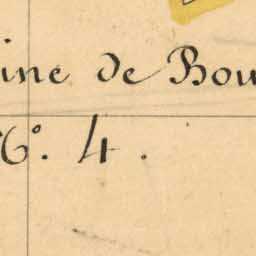 ine de Bou
N°. 4.